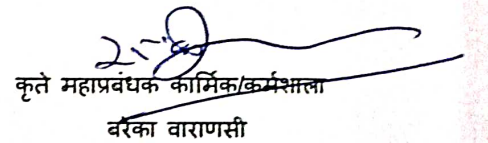 कृते महाप्रबंधक कार्मिक/कर्मशाला
बरेका वाराणसी